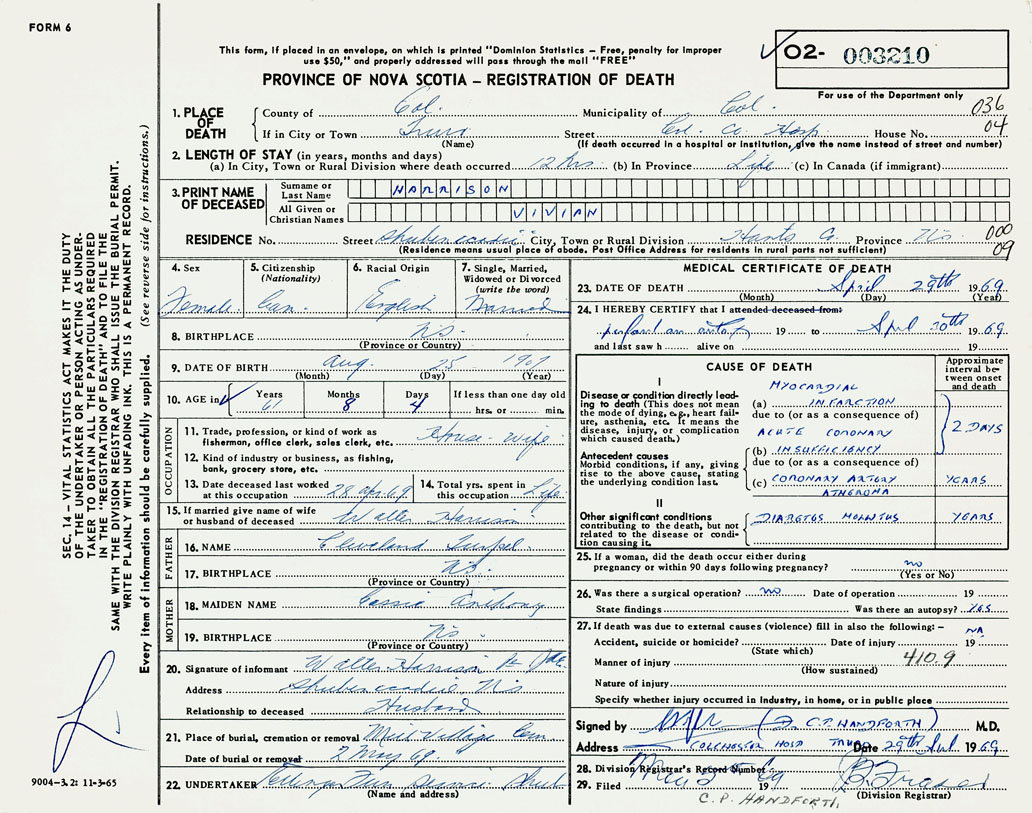 FORM 6
This form, if placed in an envelope, on which is printed "Dominion Statistics – Free, penalty for improper
use $50," and properly addressed will pass through the mail "FREE"
02- 003210
PROVINCE OF NOVA SCOTIA – REGISTRATION OF DEATH
For use of the Department only
1. PLACE OF DEATH County of Col. Municipality of Col. 036
If in City or Town Truro Street Col. Co. Hosp House No. 04
(Name) (If death occurred in a hospital or institution, give the name instead of street and number)
2. LENGTH OF STAY (in years, months and days)
(a) In City, Town or Rural Division where death occurred 12 hrs (b) In Province Life (c) In Canada (if immigrant)
3. PRINT NAME OF DECEASED Surname or Last Name HARRISON
All Given or Christian Names VIVIAN
RESIDENCE No. Street Shubenacadie City, Town or Rural Division Hants Co Province NS 000
(Residence means usual place of abode. Post Office Address for residents in rural parts not sufficient) 09
4. Sex Female
5. Citizenship (Nationality) Can.
6. Racial Origin English
7. Single, Married, Widowed or Divorced (write the word) Married
8. BIRTHPLACE NS.
(Province or Country)
9. DATE OF BIRTH Aug. 25 1907
(Month) (Day) (Year)
10. AGE in Years 61 Months 8 Days 4 If less than one day old
hrs. or min.
OCCUPATION
11. Trade, profession, or kind of work as House-wife
fisherman, office clerk, sales clerk, etc.
12. Kind of industry or business, as fishing,
bank, grocery store, etc.
13. Date deceased last worked at this occupation 28 Apr. 69
14. Total yrs. spent in this occupation Life
15. If married give name of wife or husband of deceased Walter Harrison
FATHER
16. NAME Cleveland
17. BIRTHPLACE NS.
(Province or Country)
MOTHER
18. MAIDEN NAME Cassie Anthony
19. BIRTHPLACE NS
(Province or Country)
20. Signature of informant Walter Harrison
Address Shubenacadie NS
Relationship to deceased Husband
21. Place of burial, cremation or removal Mill Village Cem
Date of burial or removal 2 May 69.
22. UNDERTAKER
(Name and address)
MEDICAL CERTIFICATE OF DEATH
23. DATE OF DEATH April 29th 1969
(Month) (Day) (Year)
24. I HEREBY CERTIFY that I attended deceased from:
19 to April 30th 1969
and last saw h alive on 19
CAUSE OF DEATH
Approximate interval between onset and death
I
Disease or condition directly leading to death (This does not mean the mode of dying, e.g., heart failure, asthenia, etc. It means the disease, injury, or complication which caused death.)
MYOCARDIAL
(a) INFARCTION
due to (or as a consequence of
ACUTE CORONARY 2 DAYS
Antecedent causes
Morbid conditions, if any, giving rise to the above cause, stating the underlying condition last.
(b) INSUFFICIENCY
due to (or as a consequence of
(c) CORONARY ARTERY YEARS
ATHEROMA
II
Other significant conditions
contributing to the death, but not related to the disease or condition causing it.
DIABETES MELLITUS YEARS
25. If a woman, did the death occur either during
pregnancy or within 90 days following pregnancy? no
(Yes or No)
26. Was there a surgical operation? no Date of operation 19
State findings Was there an autopsy? YES
27. If death was due to external causes (violence) fill in also the following:– NA
Accident, suicide or homicide? Date of injury 19
(State which)
Manner of injury 410.9
(How sustained)
Nature of injury
Specify whether injury occurred in industry, in home, or in public place
Signed by (C.P. HANDFORTH) M.D.
Address COLCHESTER HOSP TRURO Date 29th 1969
28. Division Registrar's Record Number
29. Filed May 5 1969 B. Fraser
C.P. HANDFORTH (Division Registrar)
SEC. 14 – VITAL STATISTICS ACT MAKES IT THE DUTY
OF THE UNDERTAKER OR PERSON ACTING AS UNDER-
TAKER TO OBTAIN ALL THE PARTICULARS REQUIRED
IN THE "REGISTRATION OF DEATH" AND TO FILE THE
SAME WITH THE DIVISION REGISTRAR WHO SHALL ISSUE THE BURIAL PERMIT.
WRITE PLAINLY WITH UNFADING INK. THIS IS A PERMANENT RECORD.
Every item of information should be carefully supplied. (See reverse side for instructions.)
9004–3.2: 11-3-65